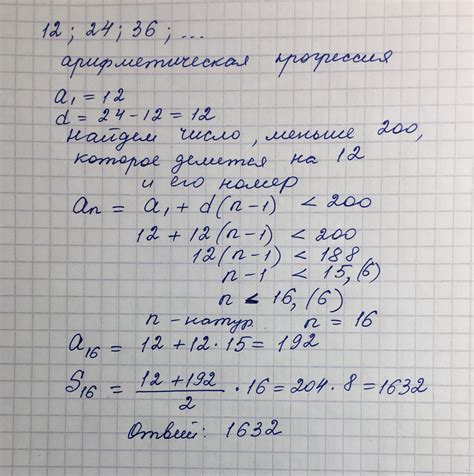 12 ; 24 ; 36 ; ...
арифметическая прогрессия
a₁ = 12
d = 24 - 12 = 12
найдем число, меньше 200,
которое делится на 12
и его номер
an = a₁ + d(n-1) < 200
12 + 12(n-1) < 200
12(n-1) < 188
n-1 < 15,(6)
n < 16,(6)
n - натур. n = 16
a₁₆ = 12 + 12·15 = 192
S₁₆ = (12 + 192)/2 · 16 = 204 · 8 = 1632
Ответ: 1632